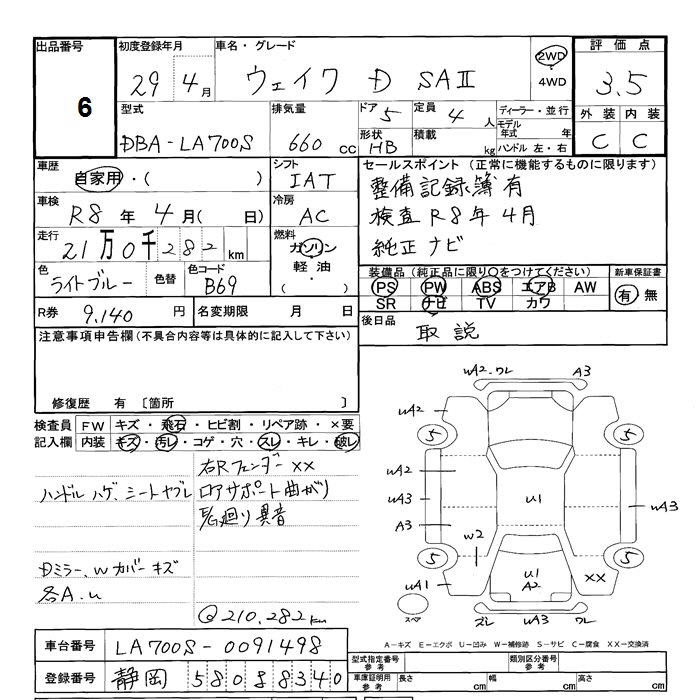 出品番号
6
初度登録年月
29 4月
車名・グレード
ウェイク D SAⅡ
2WD
・
4WD
評価点
3.5
型式
DBA-LA700S
排気量
660 cc
ドア 5
形状 HB
定員 4 人
積載 kg
ディーラー・並行
モデル年式 年
ハンドル 左・右
外装 内装
C C
車歴
自家用・( )
シフト
IAT
車検
R8 年 4 月( 日)
冷房
AC
走行
21万0千282km
燃料
ガソリン
軽油・
( )
色
ライトブルー
色替
色コード
B69
セールスポイント (正常に機能するものに限ります)
整備記録簿有
検査R8年4月
純正ナビ
装備品 (純正品に限り○をつけてください)
PS PW ABS エアB AW
SR ナビ TV カワ
新車保証書
有 無
R券 9,140 円
名変期限 月 日
後日品
取説
注意事項申告欄(不具合内容等は具体的に記入して下さい)
修復歴 有 〔箇所 〕
検査員記入欄
FW キズ・飛石・ヒビ割・リペア跡・×要
内装 キズ・汚レ・コゲ・穴・スレ・キレ・破レ
右Rフェンダー XX
ハンドルハゲ、シートヤブレ
ロアサポート曲がり
異音
Dミラー、Wカバーキズ
各A.U
@210,282km
UA2.ワレ A3
UA2
5 5
UA2
UA3
A3
U1
UA3
W2
5 5
UA1
U1
A2
XX
スペア
ズレ UA3 ワレ
A-キズ E-エクボ U-凹み W-補修跡 S-サビ C-腐食 XX-交換済
車台番号 LA700S-0091498
登録番号 静岡 580 8340
型式指定番号
参考
類別区分番号
参考
車庫証明用
参考
長さ cm
幅 cm
高さ cm